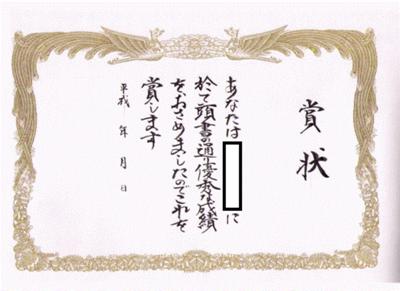 賞状
あなたは
に
於て頭書の通り優秀な成績
をおさめましたのでこれを
賞します
平成 年 月 日